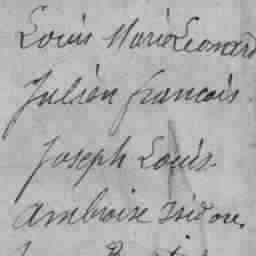 Louis Marie Leonard
Julien francois
Joseph Louis
Ambroise Isidore